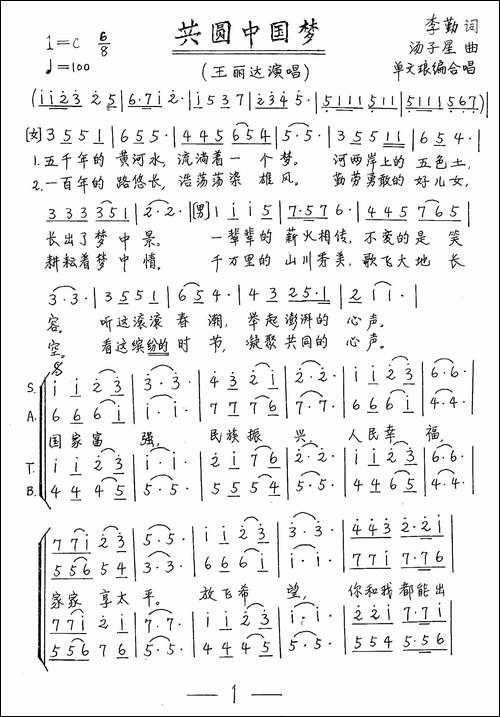 共圆中国梦
1=C 6/8
♩=100
(王丽达演唱)
李勤 词
汤子星 曲
单文琅编合唱
(i i 2 3 2 5 | 6· 7 i 2· | i 5 3 7 | 2 3 4 5· | 5 1 1 1 5 1 1 | 5 1 1 1 5 1 1 | 5 1 1 1 5 6 7) |
[女] 3 5 5 1 | 6 5 5· | 4 4 5 6 5 4 | 5· 5· | 3 5 5 1 1 | 6 5 4· |
1.五千年的 黄河水,流淌着一个梦。 河两岸上的五色土,
2.一百年的 路悠长,浩荡荡染雄风。 勤劳勇敢的好儿女,
3 3 3 3 5 1 | 2· 2· | [男] 1 i i 5 | 7· 5 7 6· | 4 4 5 7 6 5 |
长出了梦中景。 一辈辈的薪火相传,不变的是 笑
耕耘着梦中情。 千万里的山川秀美,歌飞大地 长
3· 3· | 3 5 5 1 | 6 5 4· | 4 3 2 5· 1 | 2 1 1· |
容。 听这滚滚春潮, 举起澎湃的 心声。
空。 看这缤纷的时节, 凝聚共同的 心声。
S. i i 2 3 | 3· 3· | 4 3 2 i | 2· 2· | i i 2 3 | 6· 6· |
A. 6 6 6 i | i· i· | 7 7 7 6 | 7· 7· | 6 6 6 i | 4· 4· |
国家富 强, 民族振 兴, 人民幸 福,
T. i i 2 3 | i· i· | 2 i 7 6 | 2· 2· | i i 2 3 | 6· 6· |
B. 4 4 4 5 | 5· 5· | 5 5 5 4 | 5· 5· | 4 4 6 5 | 4· 4· |
7 7 i 2 3 | 5· 5· | i i 2 3 | 3· 3· | 4 4 3 2· 2 i |
5 5 6 5 4 | 3· 3· | 6 6 6 i | i· i· | 7 7 i 7· 7 6 |
家家享太平。 放飞希 望, 你和我都能出
7 7 i 2 i | 7· 7· | i i 2 3 | i· i· | 2 2 i 7· 7 i |
5 5 6 7 6 | 5· 5· | 4 4 4 5 | 5· 5· | 5 5 4 5· 5 6 |
— 1 —